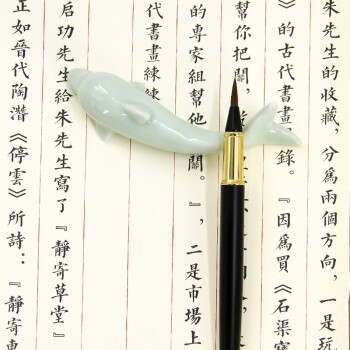 朱先生的收藏，分爲兩個方向，一是玩
》的古代書畫錄。『因爲買《石渠寶
幫你把關，
的專家組幫他關。』，二是市場上
代書畫練練
启功先生給朱先生寫了『靜寄草堂』
正如晉代陶潛《停雲》所詩：『靜寄東